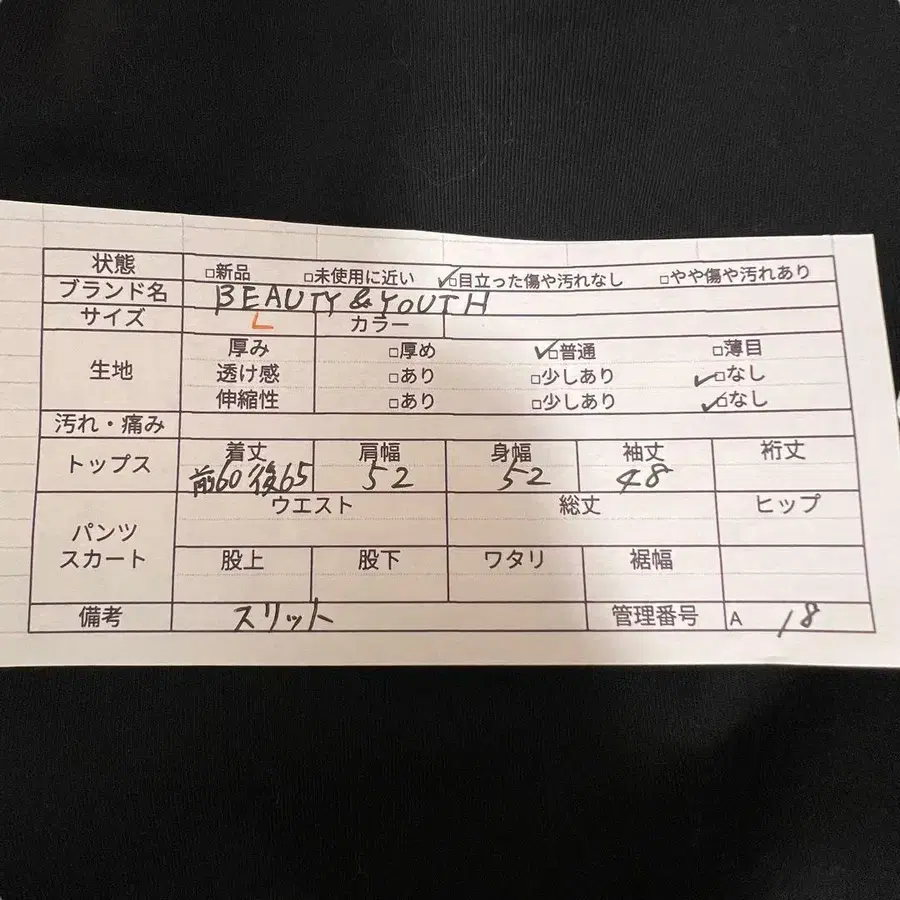 状態 □新品 □未使用に近い ☑目立った傷や汚れなし □やや傷や汚れあり
ブランド名 BEAUTY & YOUTH
サイズ L カラー
生地 厚み □厚め ☑普通 □薄目
透け感 □あり □少しあり ☑なし
伸縮性 □あり □少しあり ☑なし
汚れ・痛み
トップス 着丈 肩幅 身幅 袖丈 裄丈
前60 後65 52 52 48
パンツ スカート ウエスト 総丈 ヒップ
股上 股下 ワタリ 裾幅
備考 スリット 管理番号 A 18